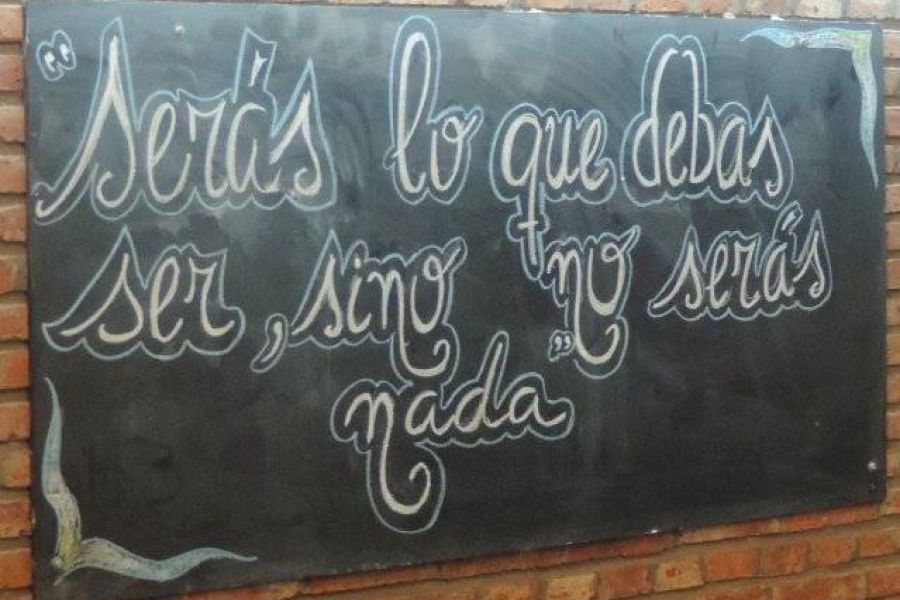 “serás lo que debas
ser, sino no serás
nada”